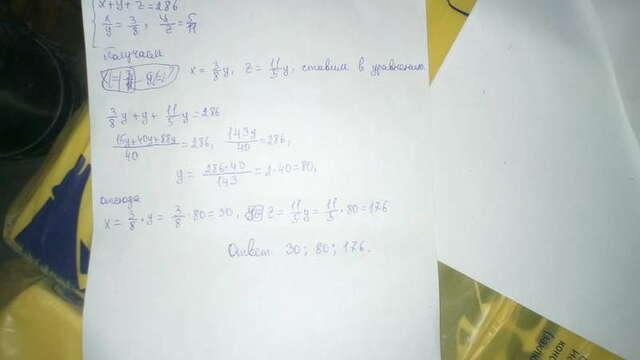 x+y+z=286
x/y=3/8, y/z=5/11
Получаем
x=3/8y, z=11/5y, ставим в уравнение.
3/8y+y+11/5y=286
15y+40y+88y/40=286, 143y/40=286,
y=286·40/143=2·40=80,
отсюда
x=3/8·y=3/8·80=30, z=11/5y=11/5·80=176
Ответ: 30; 80; 176.